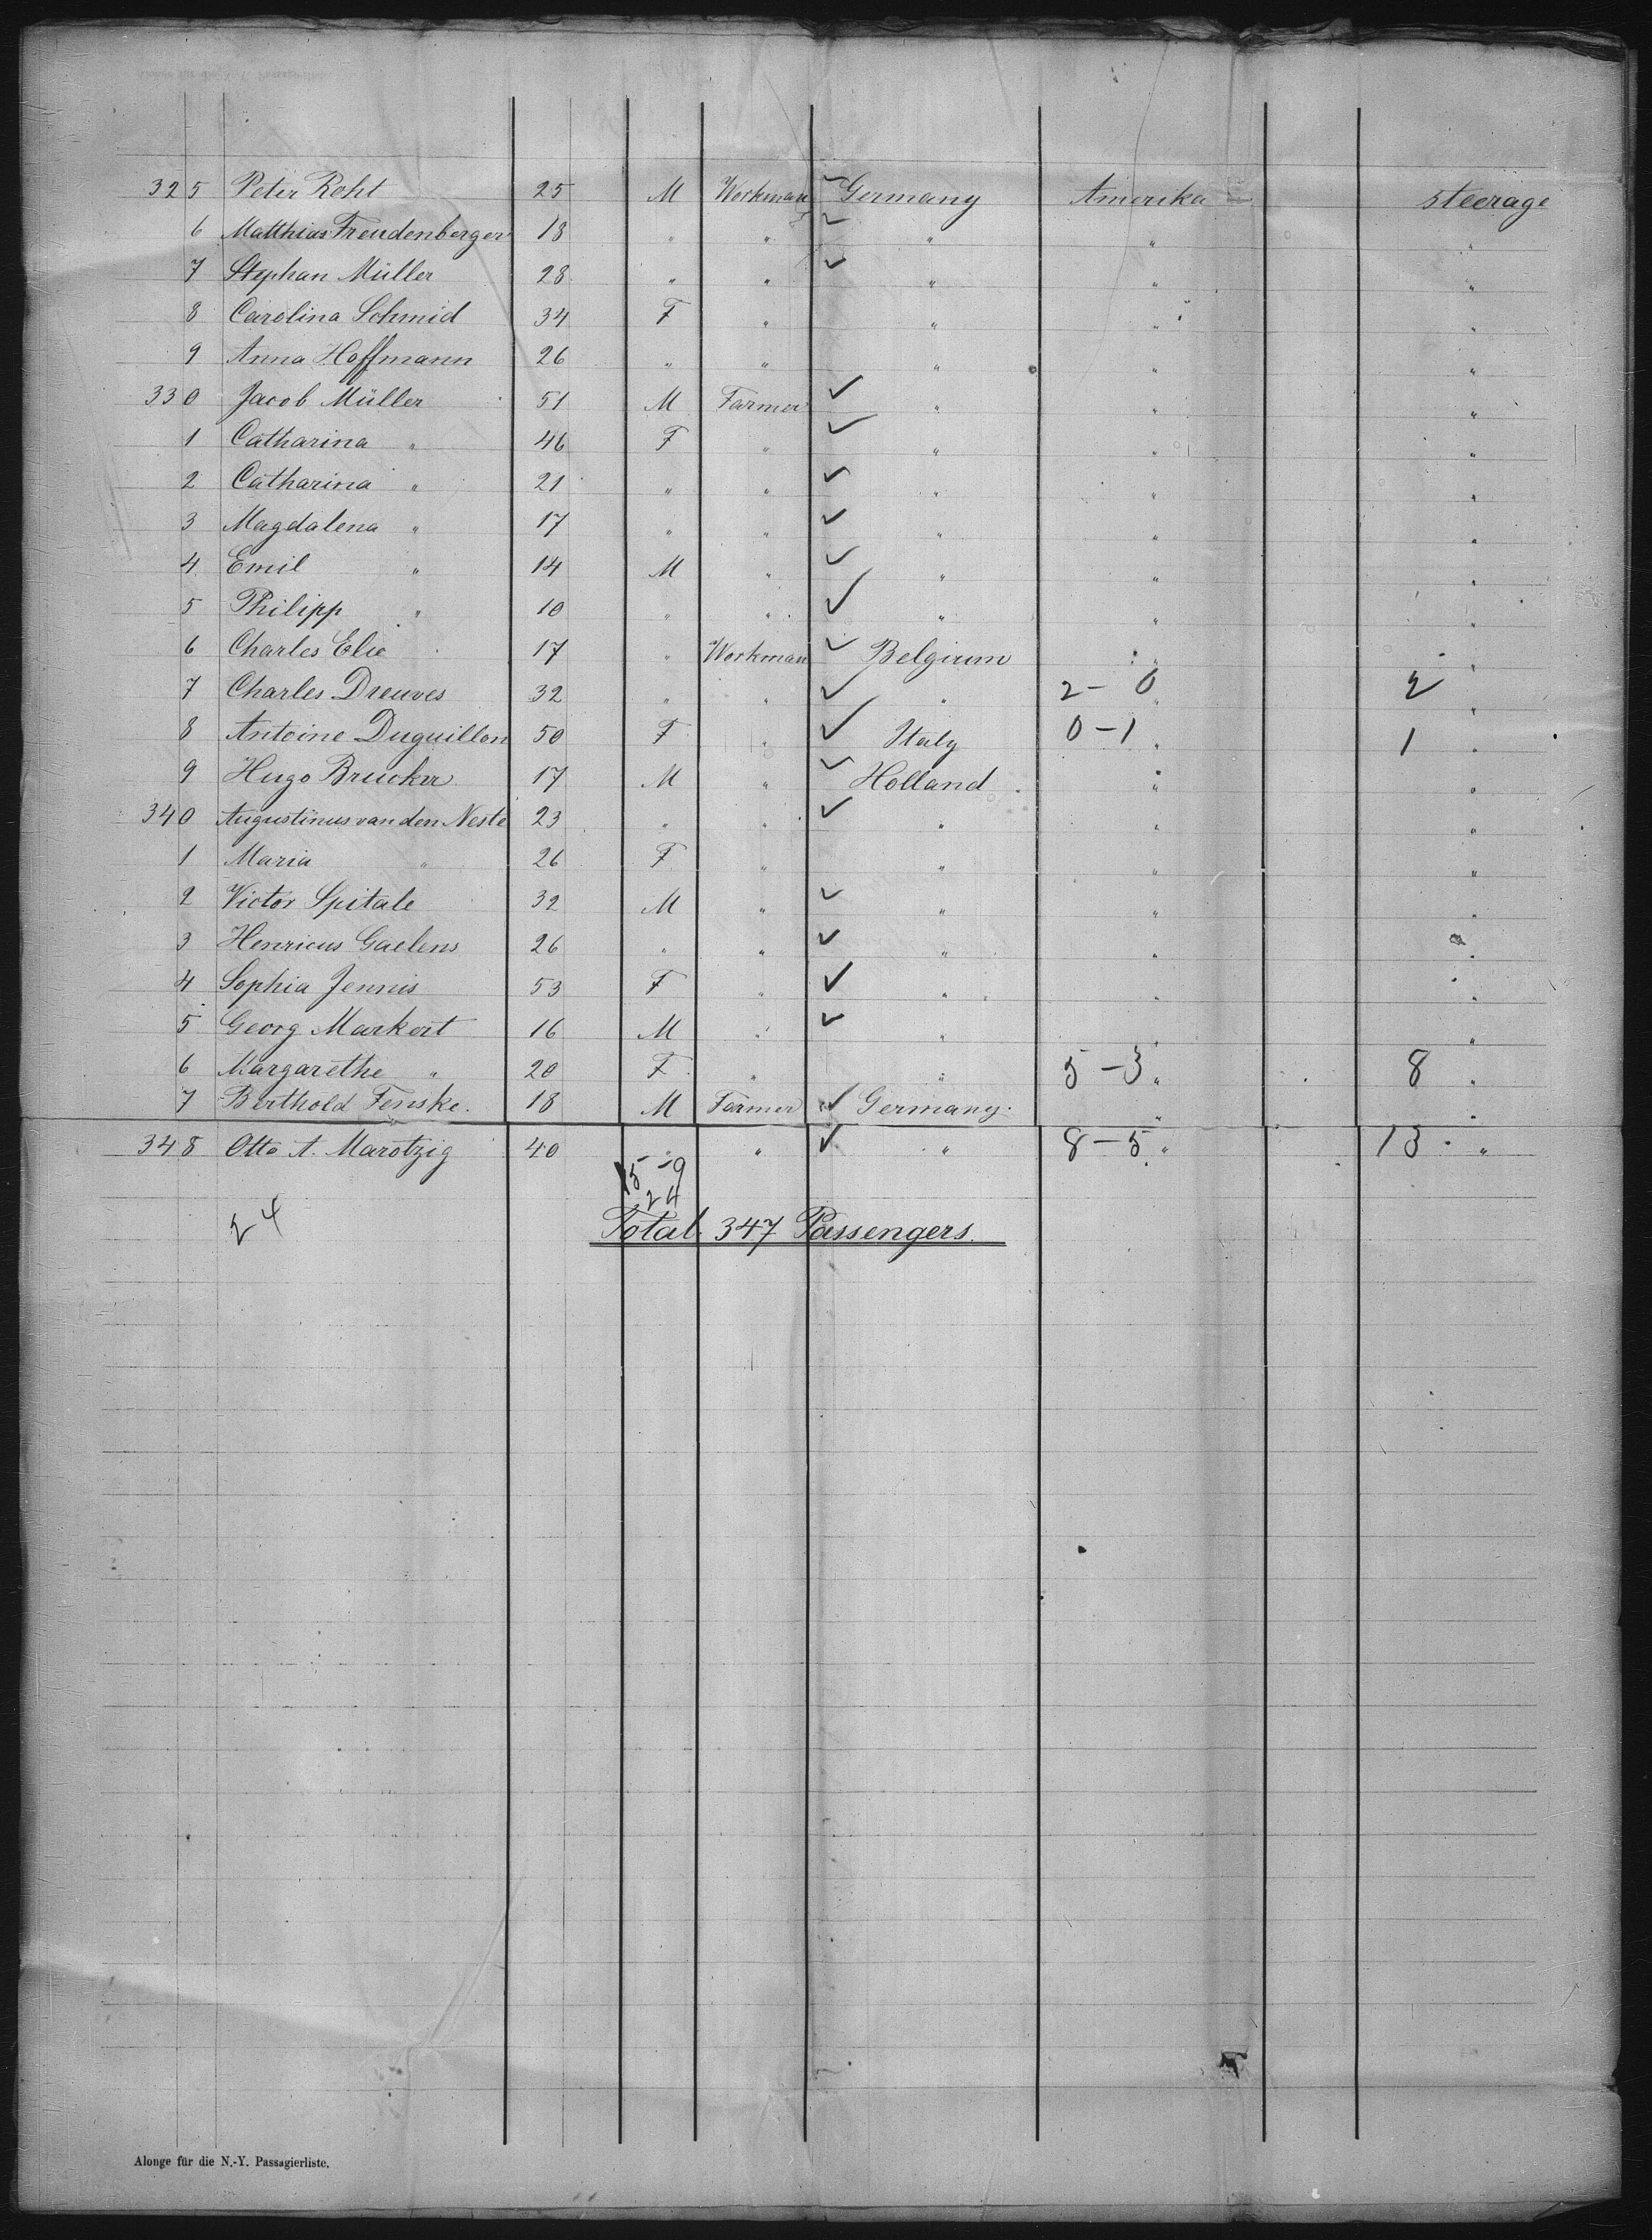 325 Peter Roht 25 M Workman ✓ Germany Amerika steerage
6 Matthias Freudenberger 18 " " ✓ " " "
7 Stephan Müller 28 " " ✓ " " "
8 Carolina Schmid 34 F " " " "
9 Anna Hoffmann 26 " " " " "
330 Jacob Müller 51 M Farmer ✓ " " "
1 Catharina " 46 F " ✓ " " "
2 Catharina " 21 " " ✓ " " "
3 Magdalena " 17 " " ✓ " " "
4 Emil " 14 M " ✓ " " "
5 Philipp " 10 " " ✓ " " "
6 Charles Elie 17 " Workman ✓ Belgium " "
7 Charles Dreuves 32 " " ✓ " 2-0 " 2 "
8 Antoine Duguillon 50 F " ✓ Italy 0-1 " 1 "
9 Hugo Brucker 17 M " ✓ Holland " "
340 Augustinus van den Neste 23 " " ✓ " " "
1 Maria " 26 F " " " "
2 Victor Spitale 32 M " ✓ " " "
3 Henricus Gaelens 26 " " ✓ " " "
4 Sophia Jennis 53 F " ✓ " " "
5 Georg Markert 16 M " ✓ " " "
6 Margarethe " 20 F " " 5-3 " 8 "
7 Berthold Fenske. 18 M Farmer ✓ Germany. " "
348 Otto A. Marotzig 40 " " ✓ " 8-5 " 13 "
15-9
24
24
Total 347 Passengers.
Alonge für die N.-Y. Passagierliste.